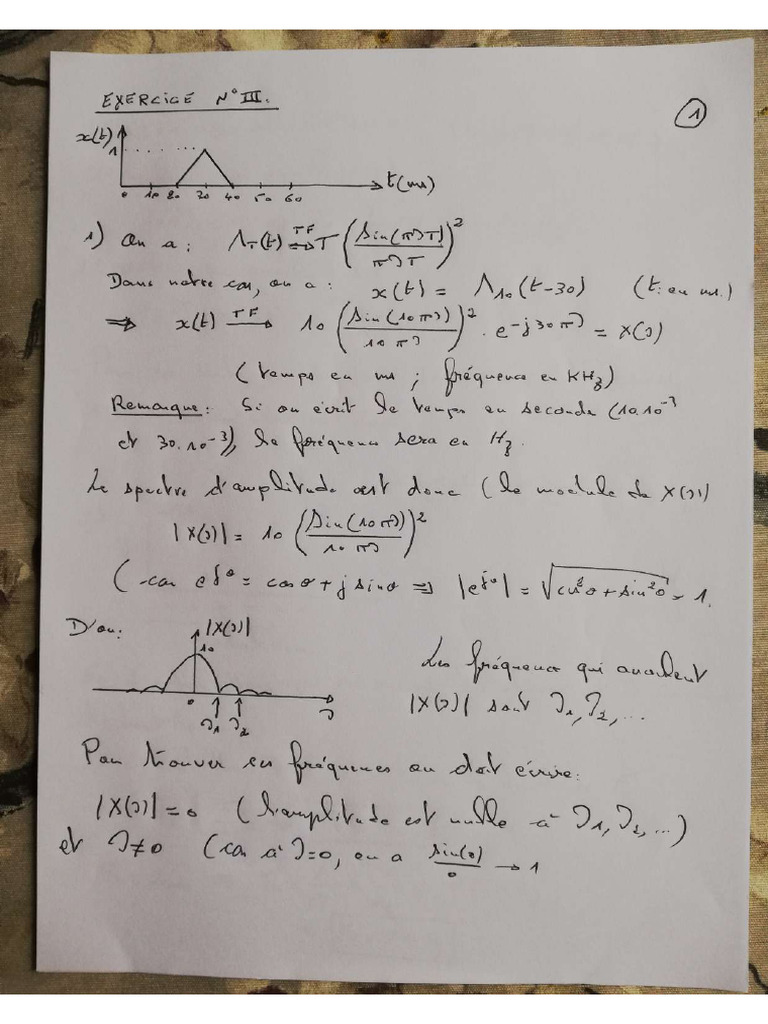 EXERCICE N° III.
1
x(t)
1
0 10 20 30 40 50 60 t(ms)
1) On a : Λ_T(t) ⇌^{TF} T (sin(πνT) / πνT)²
Dans notre cas, on a : x(t) = Λ₁₀(t-30) (t: en ms.)
⇒ x(t) →^{TF} 10 (sin(10πν) / 10πν)² . e^{-j30πν} = X(ν)
(temps en ms ; fréquence en KHz)
Remarque : Si on écrit le temps en seconde (10.10⁻³
et 30.10⁻³), la fréquence sera en Hz.
Le spectre d'amplitude est donc (le module de X(ν))
|X(ν)| = 10 (sin(10πν) / 10πν)²
(car e^{jθ} = cosθ + j sinθ ⇒ |e^{jθ}| = √(cos²θ + sin²θ) = 1.
D'où : |X(ν)|
10
0 ν₁ ν₂ ν
Les fréquences qui annulent
|X(ν)| sont ν₁, ν₂, ...
Pour trouver ces fréquences on doit écrire :
|X(ν)| = 0 (l'amplitude est nulle à ν₁, ν₂, ...)
et ν ≠ 0 (car à ν=0, on a sin(0) / 0 → 1